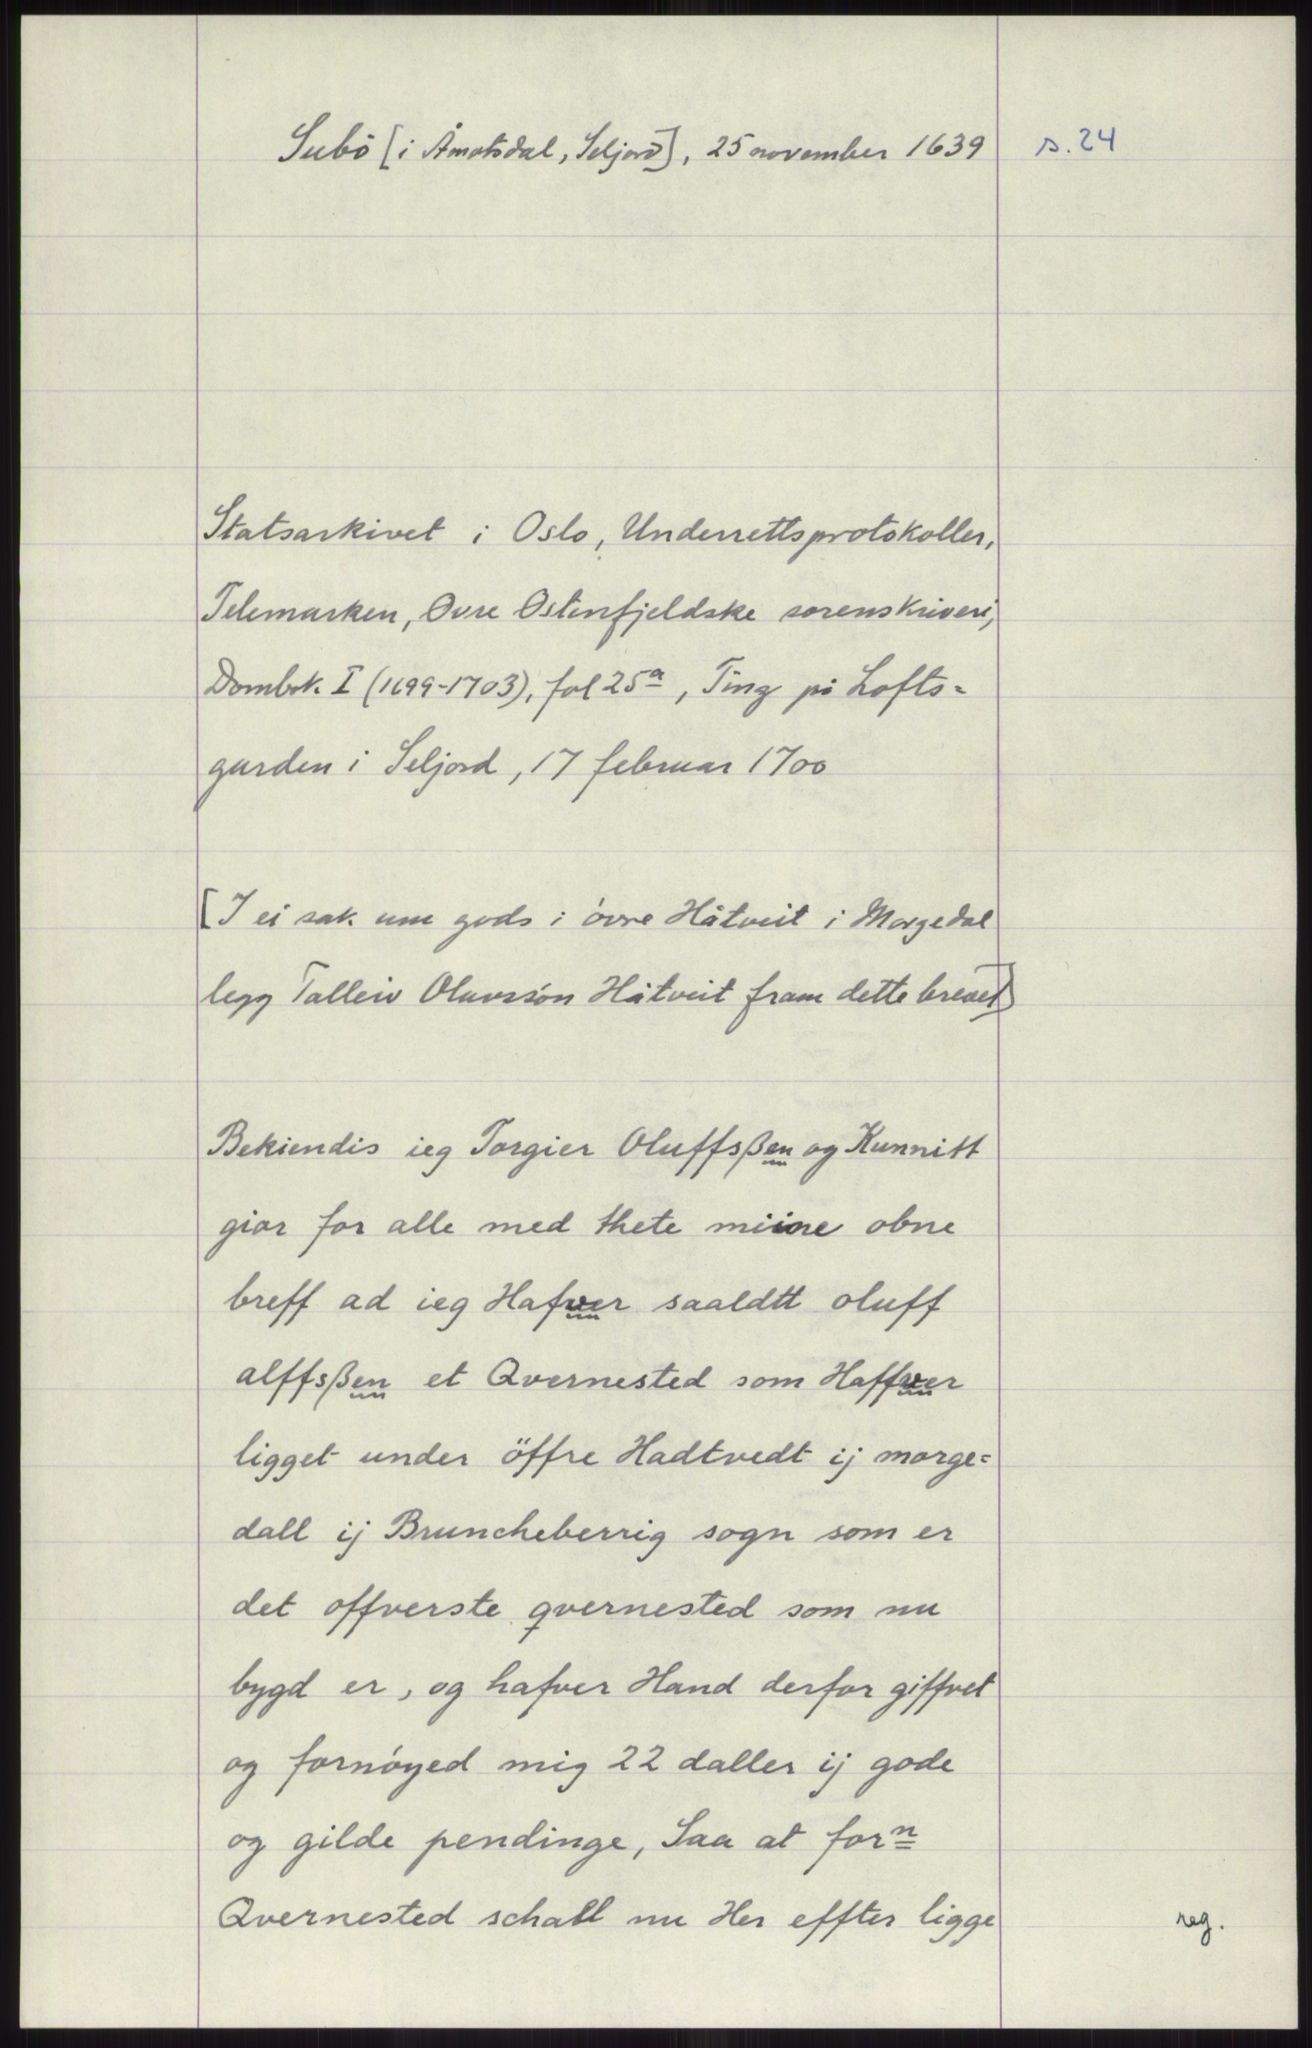 Subö [i Åmotsdal, Seljord], 25 november 1639
s. 24
Statsarkivet i Oslo, Underrettsprotokoller,
Telemarken, Øvre Østenfjeldske sorenskriveri,
Dombok I (1699-1703), fol 25a, Ting på Lofts=
garden i Seljord, 17 februar 1700
[I ei sak um gods i óvre Håtveit i Morgedal
legg Talleiv Olavssón Håtveit fram dette brevet]
Bekiendis ieg Torgier Oluffsßen og Kunnitt
giør for alle med thete miine obne
breff ad ieg Hafver saaldtt oluff
alffsßen et Qvernested som Haffver
ligget under öffre Hadtvedt ij morge=
dall ij Bruncheberrig sogn som er
det offverste qvernested som nu
bygd er, og hafver Hand derfor giffvet
og fornóyed mig 22 daller ij gode
og gilde pendinge, Saa at forn
Qvernested schall nu Her effter ligge
reg.